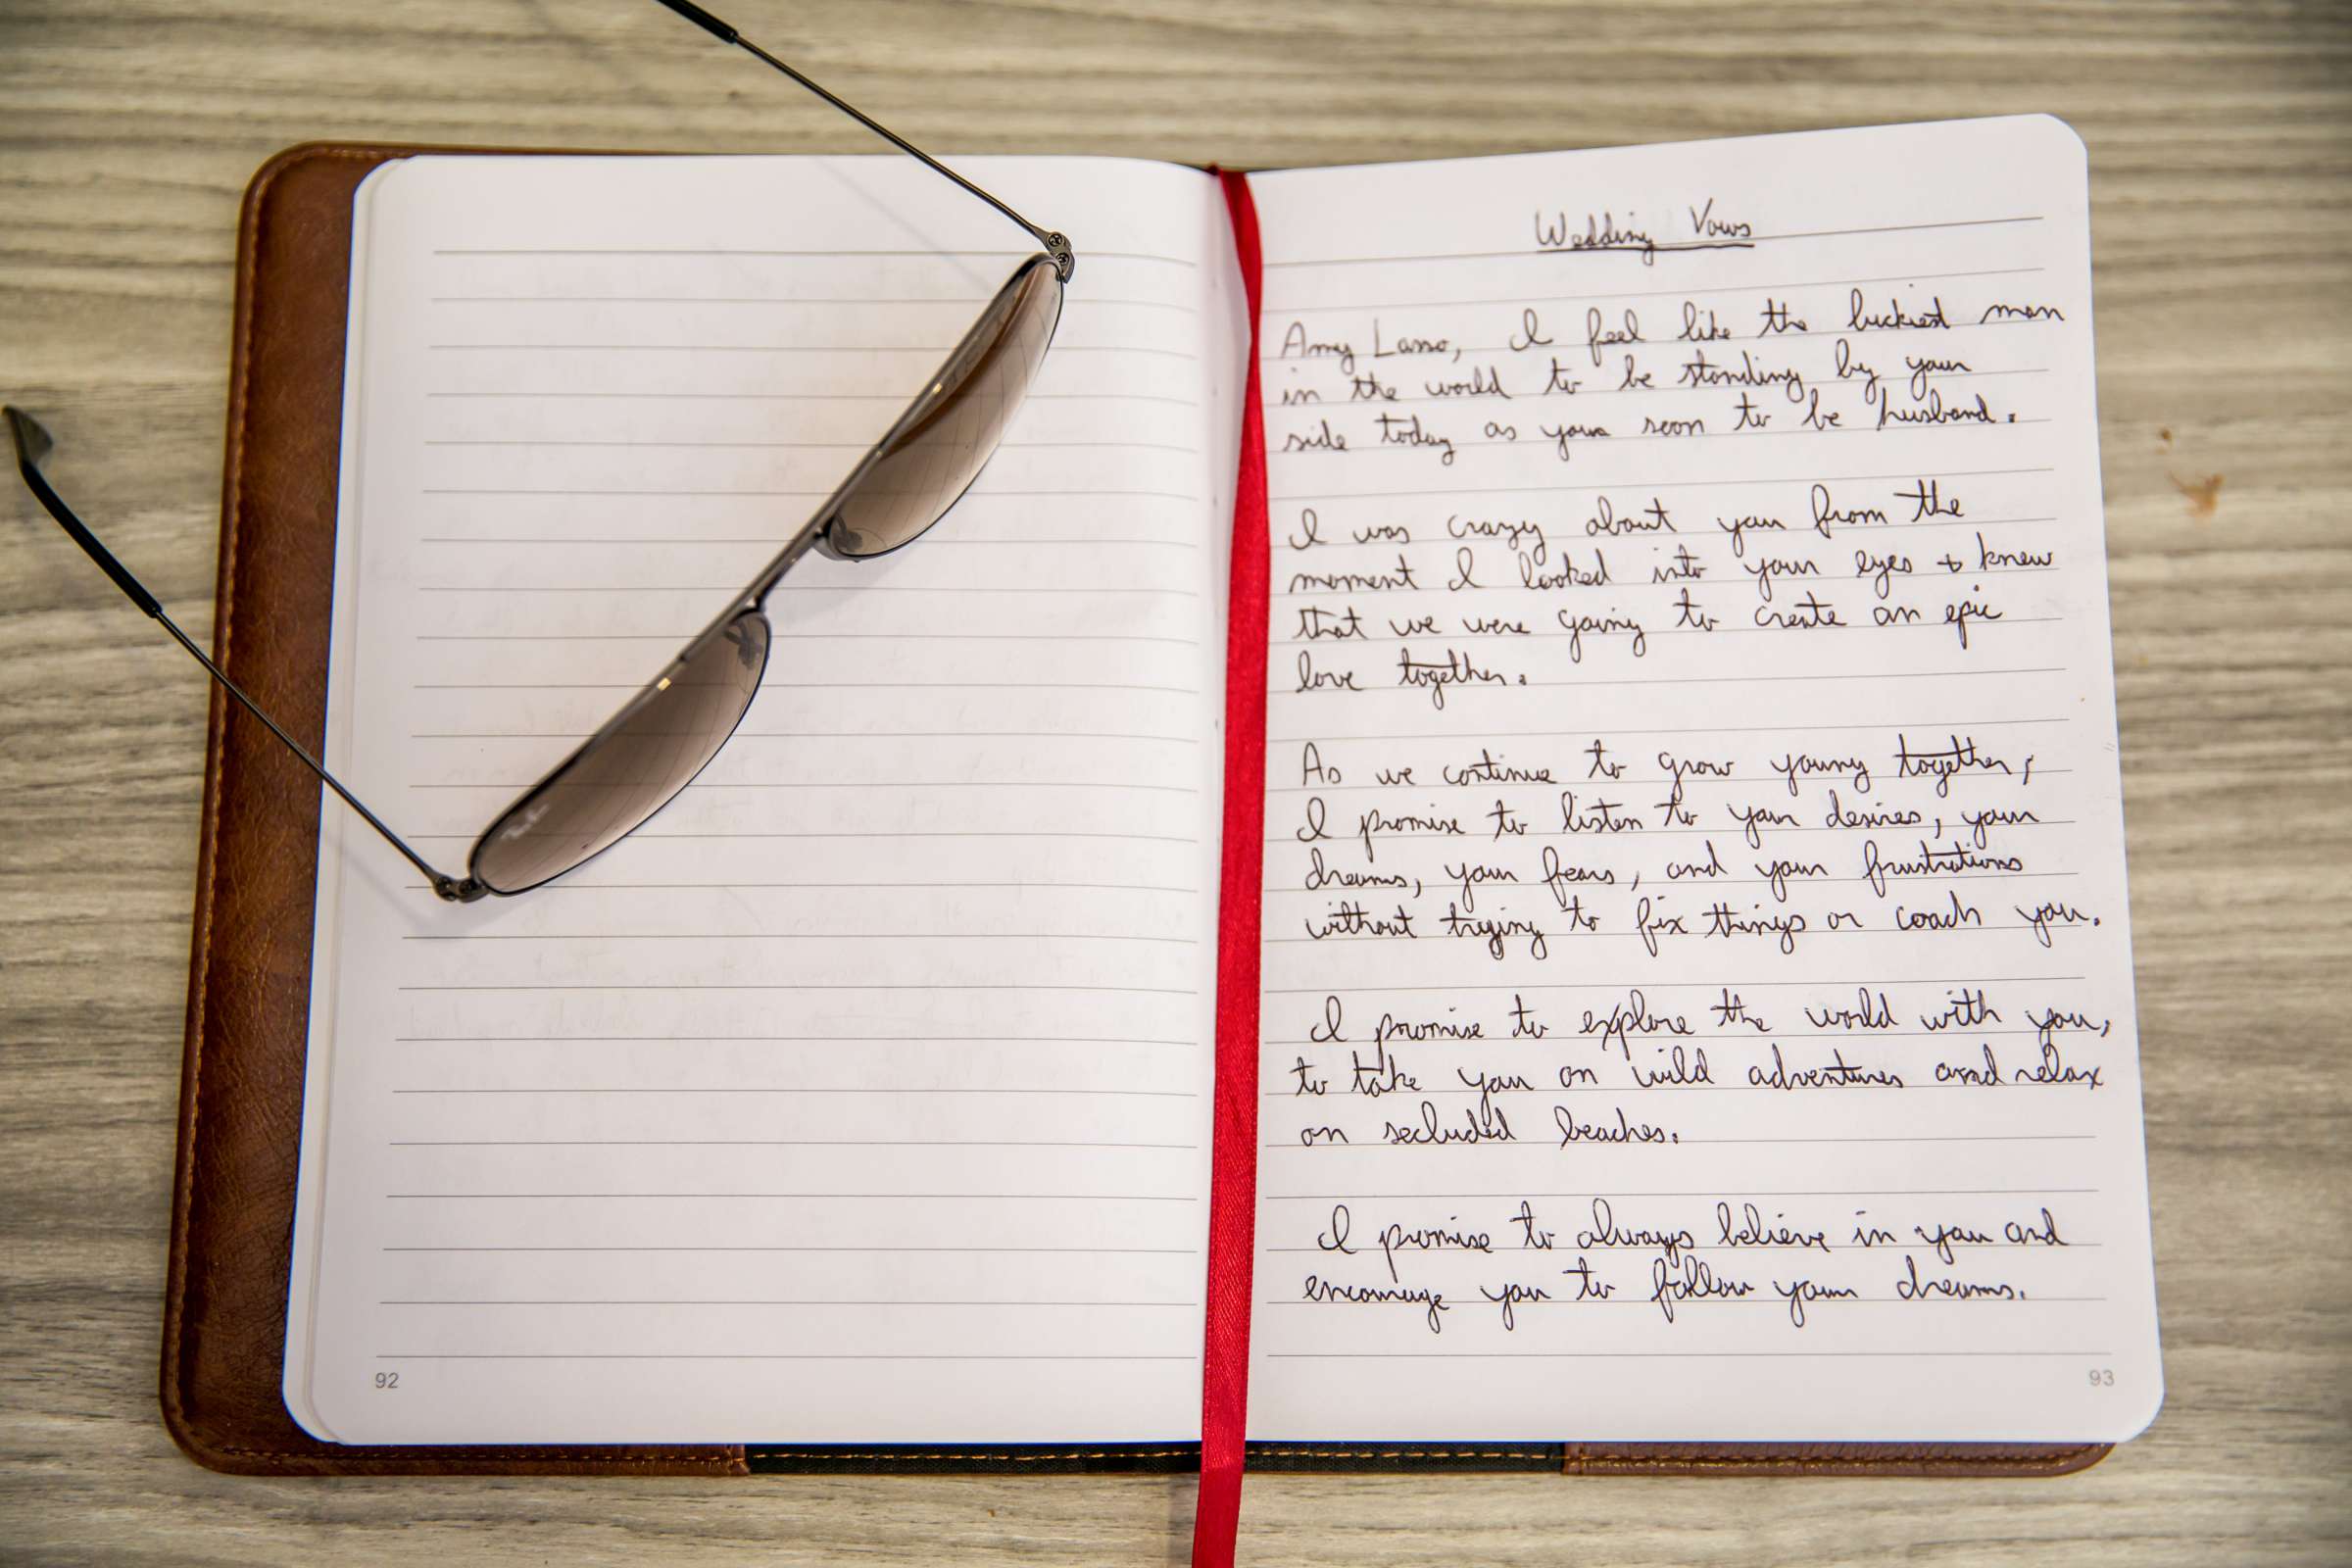 Wedding Vows
Amy Lasso, I feel like the luckiest man
in the world to be standing by your
side today as your soon to be husband.
I was crazy about you from the
moment I looked into your eyes & knew
that we were going to create an epic
love together.
As we continue to grow young together,
I promise to listen to your desires, your
dreams, your fears, and your frustrations
without trying to fix things or coach you.
I promise to explore the world with you,
to take you on wild adventures and relax
on secluded beaches.
I promise to always believe in you and
encourage you to follow your dreams.
92
93
Ray-Ban